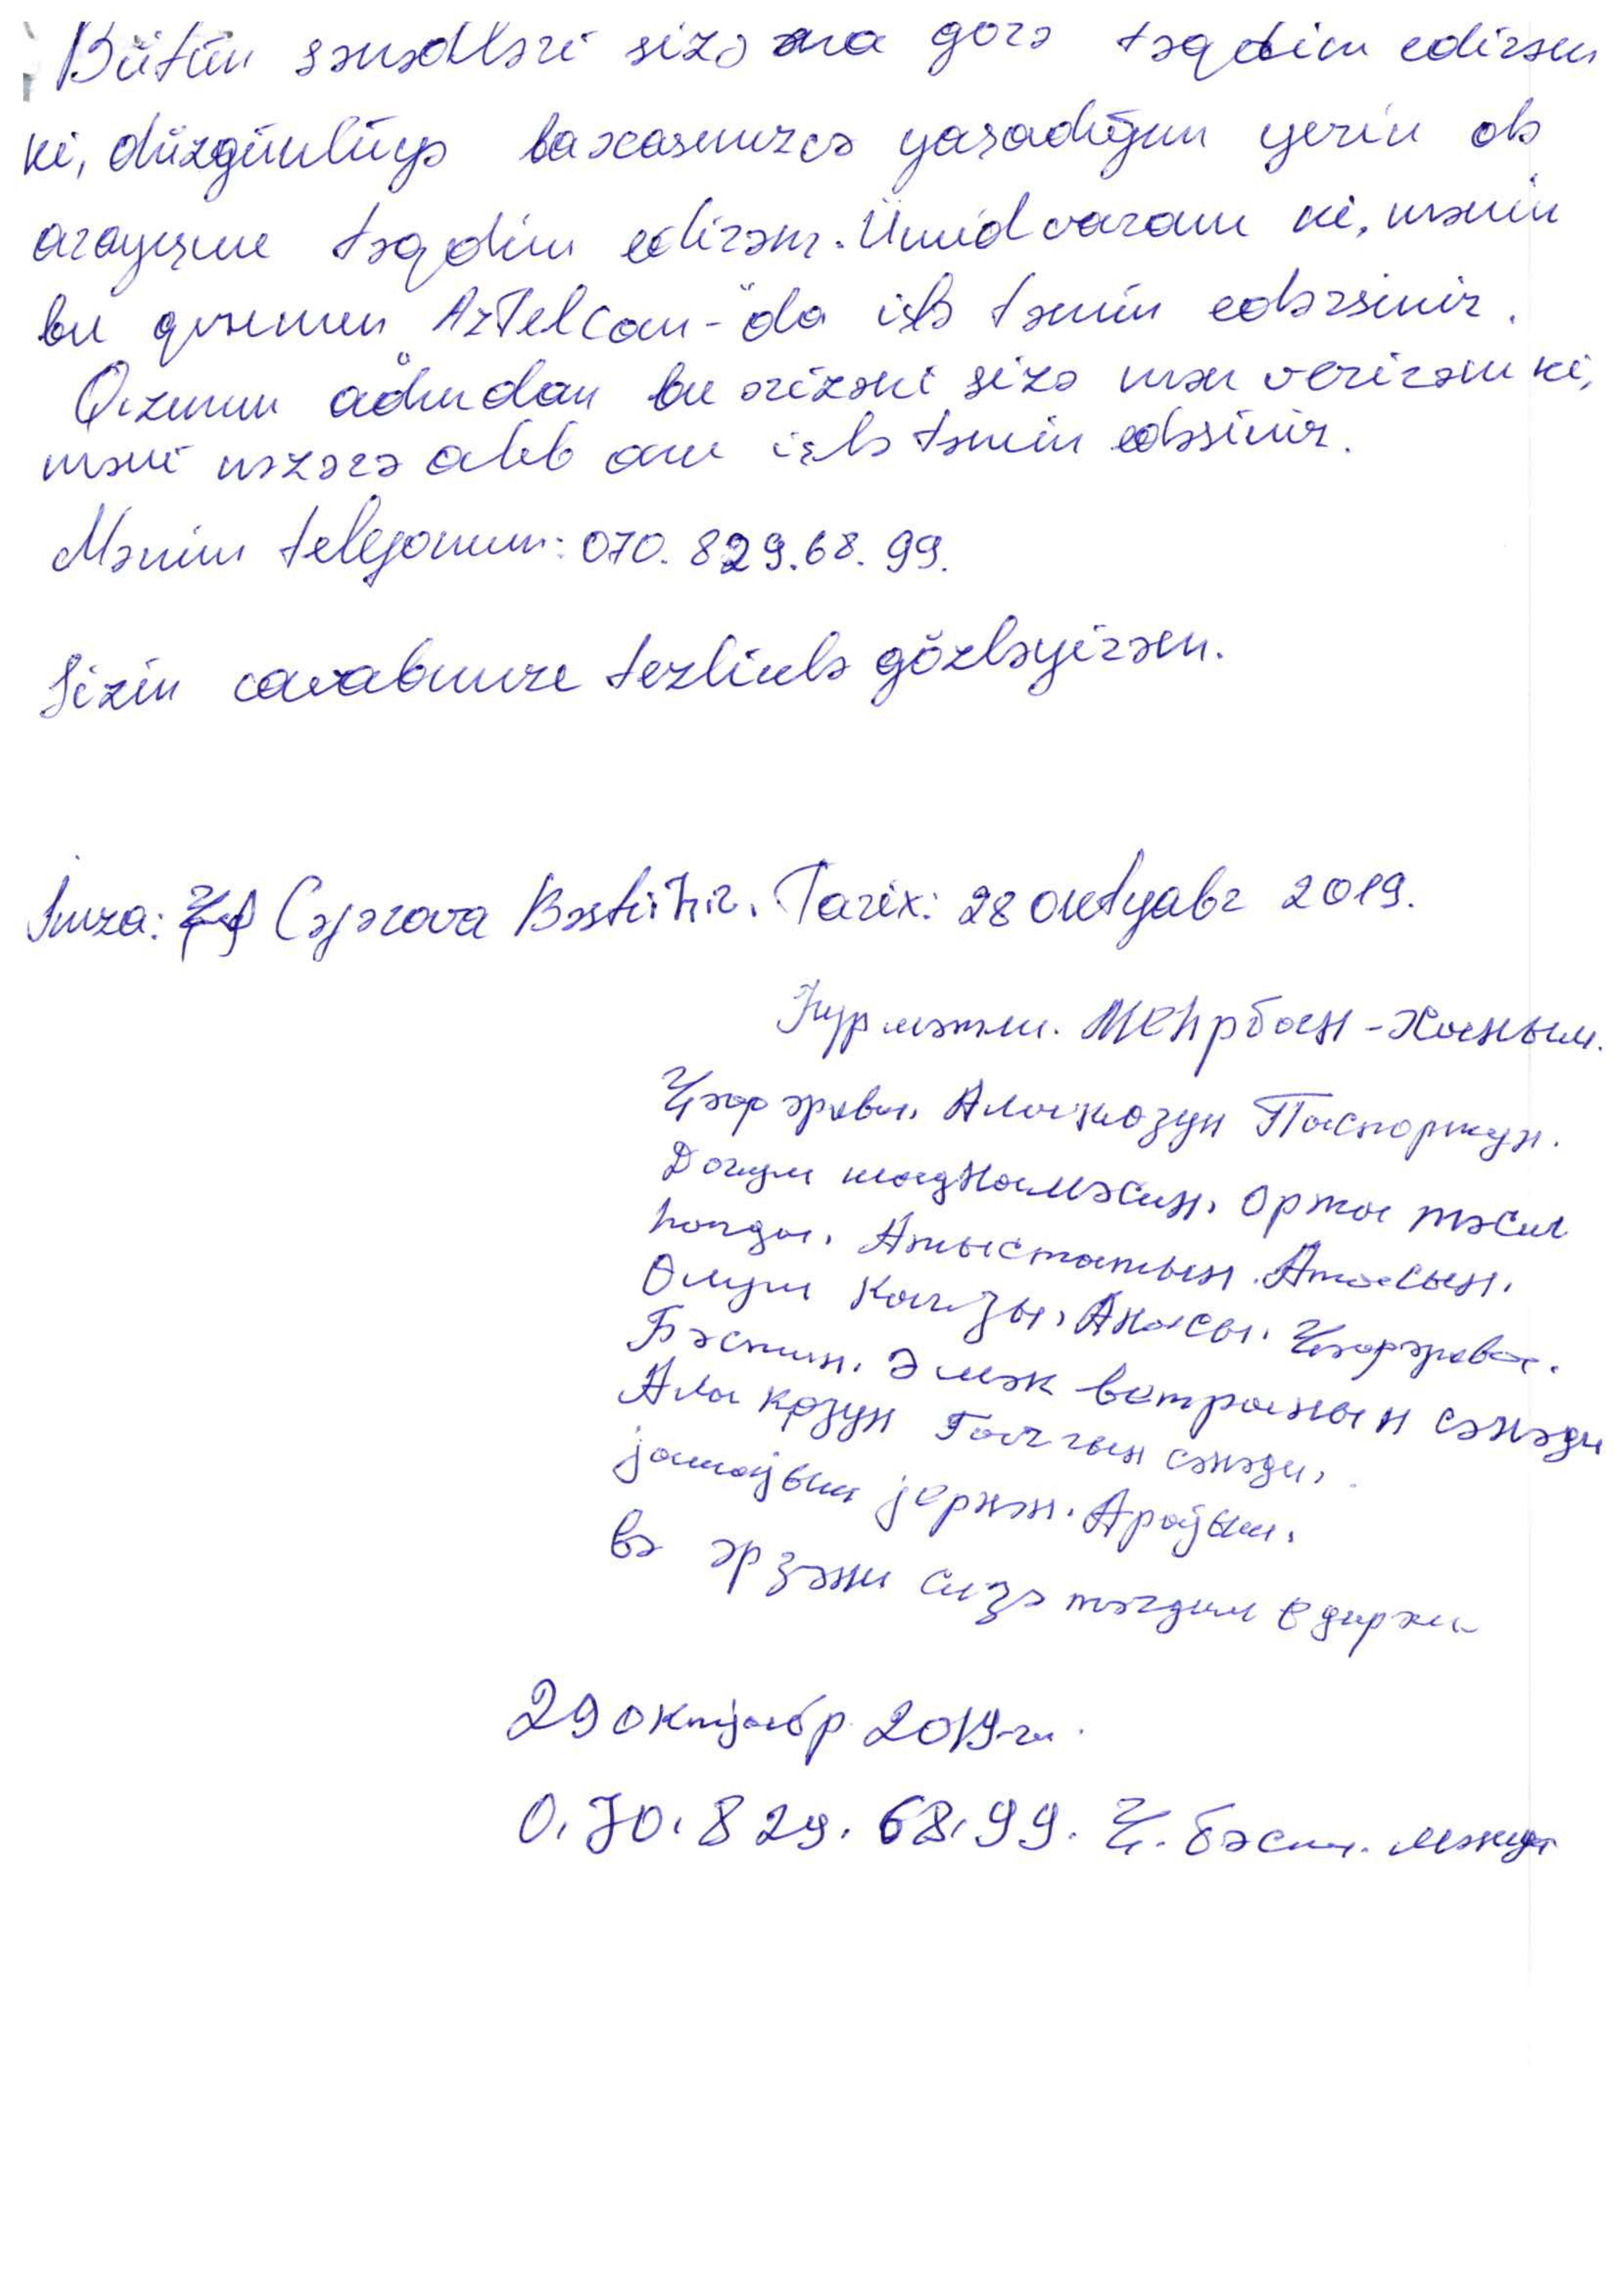 Bütün sənədləri sizə ona görə təqdim edirəm
ki, düzgünlüyə baxasınızcə yaşadığım yerin də
arayışını təqdim edirəm. Ümidvaram ki, mənim
bu qızımın AzTelCom-da işlə təmin edərsiniz.
Qızımın adından bu ərizəni sizə mən verirəm ki,
məni nəzərə alıb onu işlə təmin edəsiniz.
Mənim telefonum: 070. 829.68. 99.
Sizin cavabınızı tezliklə gözləyirəm.
İmza: Cəfərova Bəsti. Tarix: 28 oktyabr 2019.
Һурмәтли. Меһрбан - Ханым.
Ҹәфәрова. Алакөзүн Паспортун.
Доғум шәһднамәсин, Орта тәсил
һагда. Атыстатын. Атасын.
Өлүм Кағзы, Анасы. Ҹәфәрова.
Бәстин. Әмәк ветранын сәнәди
Ала көзүн Гачгын сәнәди,
јашајыш јернән. Арајыш.
вә әрзәни сизә тәгдим едирәм
29 октјабр 2019-ги.
0.70.829.68.99. Ҹ. Бәсти.